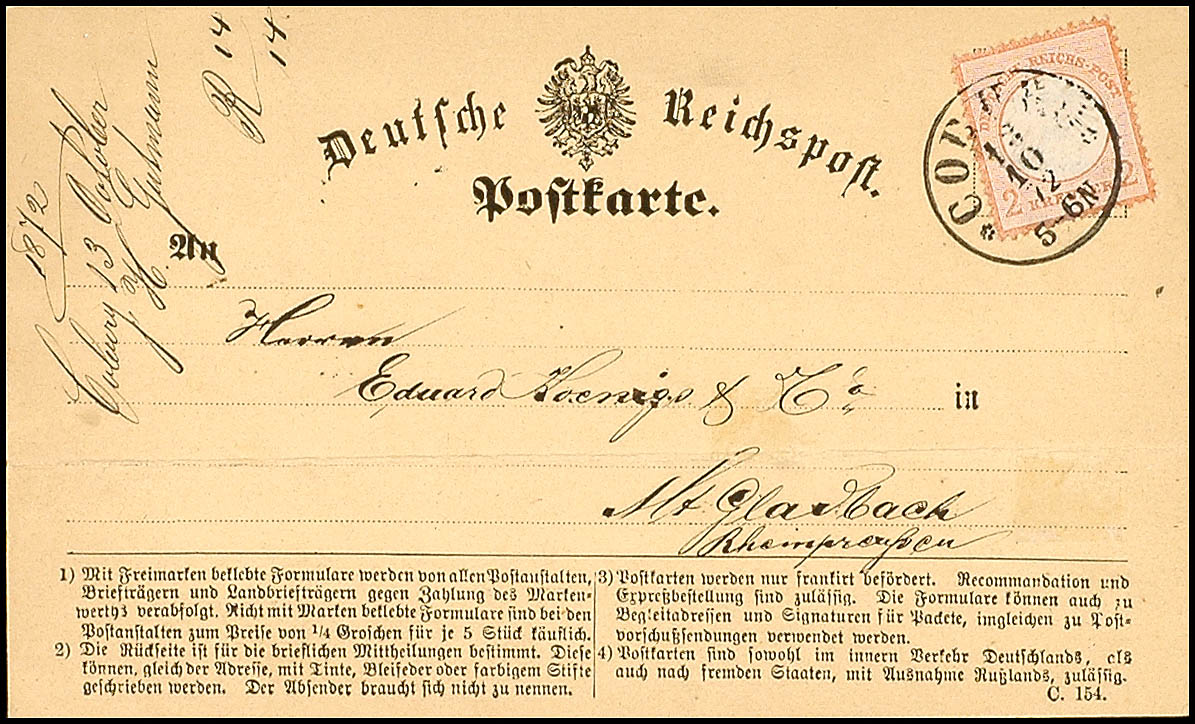 1872
Coburg 13 October
H.
R 14
14
Deutsche Reichspost.
Postkarte.
REICHS-POST
2 2
COB
13
10
72
5-6N
An
Herren
Eduard Koenigs & Co in
Mt Gladbach
Rheinpreußen
1) Mit Freimarken beklebte Formulare werden von allen Postanstalten,
Briefträgern und Landbriefträgern gegen Zahlung des Marken-
werths verabfolgt. Nicht mit Marken beklebte Formulare sind bei den
Postanstalten zum Preise von 1/4 Groschen für je 5 Stück käuflich.
2) Die Rückseite ist für die brieflichen Mittheilungen bestimmt. Diese
können, gleich der Adresse, mit Tinte, Bleifeder oder farbigem Stifte
geschrieben werden. Der Absender braucht sich nicht zu nennen.
3) Postkarten werden nur frankirt befördert. Recommandation und
Expreßbestellung sind zulässig. Die Formulare können auch zu
Begleitadressen und Signaturen für Packete, imgleichen zu Post-
vorschußsendungen verwendet werden.
4) Postkarten sind sowohl im innern Verkehr Deutschlands, als
auch nach fremden Staaten, mit Ausnahme Rußlands, zulässig.
C. 154.